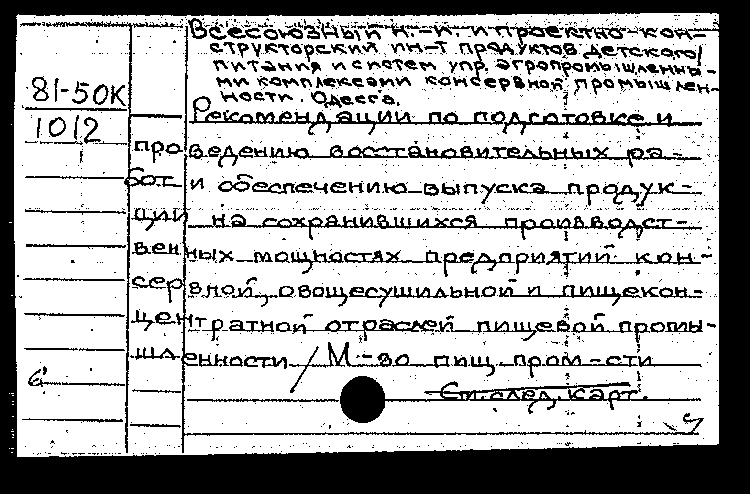 Всесоюзный н.-и. и проектно-кон-
структорский ин-т продуктов детского
питания и систем упр. агропромышленны-
ми комплексами консервной промышлен-
ности. Одесса.
81-50К
1012
Рекомендации по подготовке и
проведению восстановительных ра-
бот и обеспечению выпуска продук-
ции на сохранившихся производст-
венных мощностях предприятий кон-
сервной, овощесушильной и пищекон-
центратной отраслей пищевой промы-
шленности / М-во пищ. пром-сти
См. след. карт.